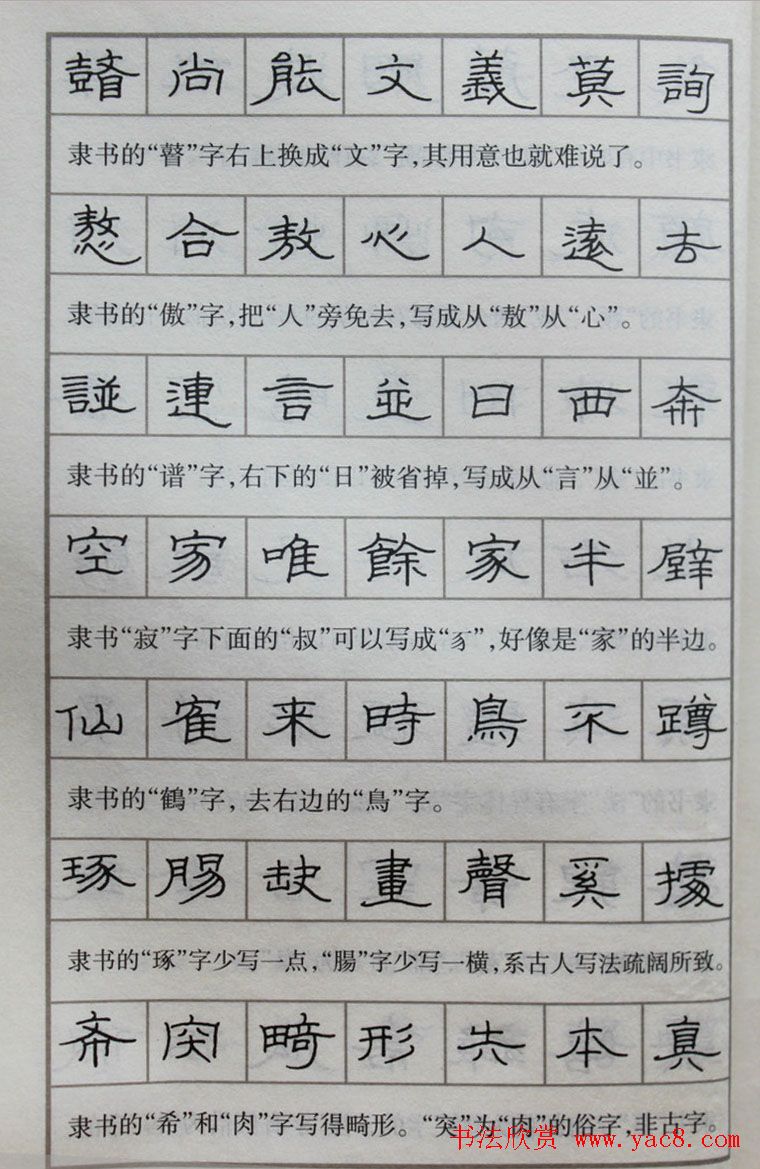 瞽尚能文義莫詢
隶书的“瞽”字右上换成“文”字，其用意也就难说了。
合敖心人遠去
隶书的“傲”字，把“人”旁免去，写成从“敖”从“心”。
連言並日西奔
隶书的“谱”字，右下的“日”被省掉，写成从“言”从“並”。
空唯餘家半壁
隶书“寂”字下面的“叔”可以写成“”，好像是“家”的半边。
仙寉来時鳥不蹲
隶书的“鶴”字，去右边的“鳥”字。
琢腸缺畫聲奚據
隶书的“琢”字少写一点，“腸”字少写一横，系古人写法疏阔所致。
希宍畸形失本真
隶书的“希”和“肉”字写得畸形。“宍”为“肉”的俗字，非古字。
书法欣赏 www.yac8.com